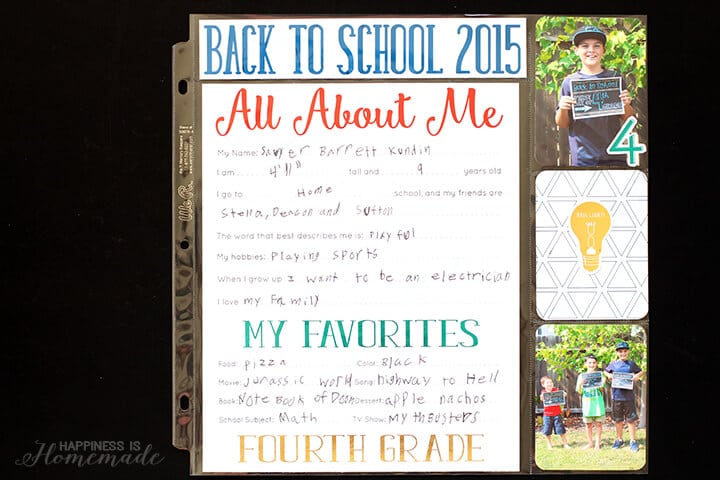 BACK TO SCHOOL 2015
All About Me
My Name: Sawyer Barrett Kundin
I am 4'11" tall and 9 years old
I go to Home school, and my friends are
Stella, Deacon and Sutton
The word that best describes me is: Playful
My hobbies: Playing sports
When I grow up I want to be an electrician
I love my Family
MY FAVORITES
Food: pizza Color: Black
Movie: Jurassic World Song: highway to Hell
Book: Note Book of Doom Dessert: apple nachos
School Subject: Math TV Show: Mythbusters
FOURTH GRADE
Back to School
4
We R
HAPPINESS IS
Homemade